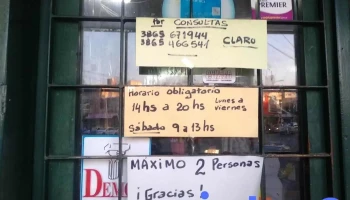 PREMIER
Por CONSULTAS
3865 671944
3865 466541 CLARO
Horario obligatorio
14hs a 20hs Lunes a viernes
Sábado 9 a 13hs
MAXIMO 2 Personas
DEMO
¡Gracias!